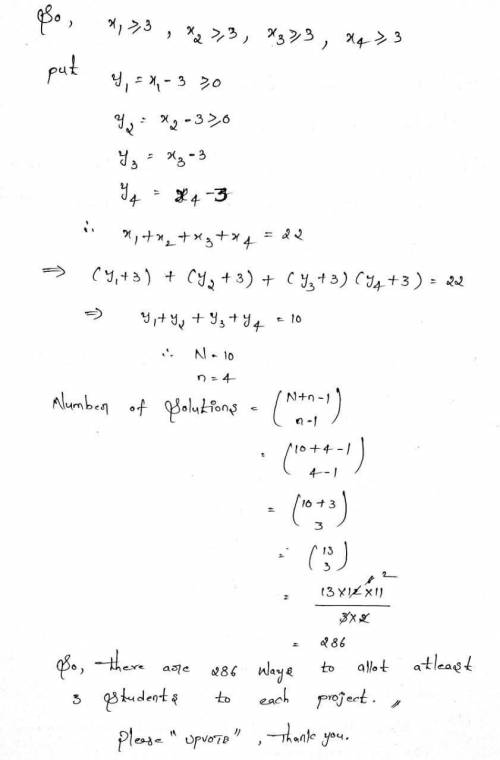 So, x₁ ≥ 3 , x₂ ≥ 3, x₃ ≥ 3, x₄ ≥ 3
put y₁ = x₁ - 3 ≥ 0
y₂ = x₂ - 3 ≥ 0
y₃ = x₃ - 3
y₄ = x₄ - 3
∴ x₁ + x₂ + x₃ + x₄ = 22
⇒ (y₁+3) + (y₂+3) + (y₃+3) (y₄+3) = 22
⇒ y₁ + y₂ + y₃ + y₄ = 10
∴ N = 10
n = 4
Number of Solutions = (N+n-1
n-1)
= (10+4-1
4-1)
= (10+3
3)
= (13
3)
2
= 13×12×11
3×2
= 286
So, there are 286 ways to allot atleast
3 students to each project.,,
Please "UPVOTE", Thank you.